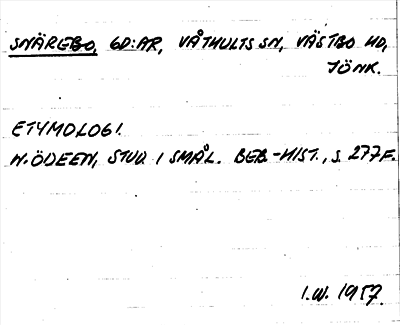 SNÄREBO, GD:AR, VÅTHULTS SN, VÄSTBO HD,
JÖNK.
ETYMOLOGI.
N. ÖDEEN, STUD. I SMÅL. BEB.-HIST., S. 277F.
I.W. 1957.